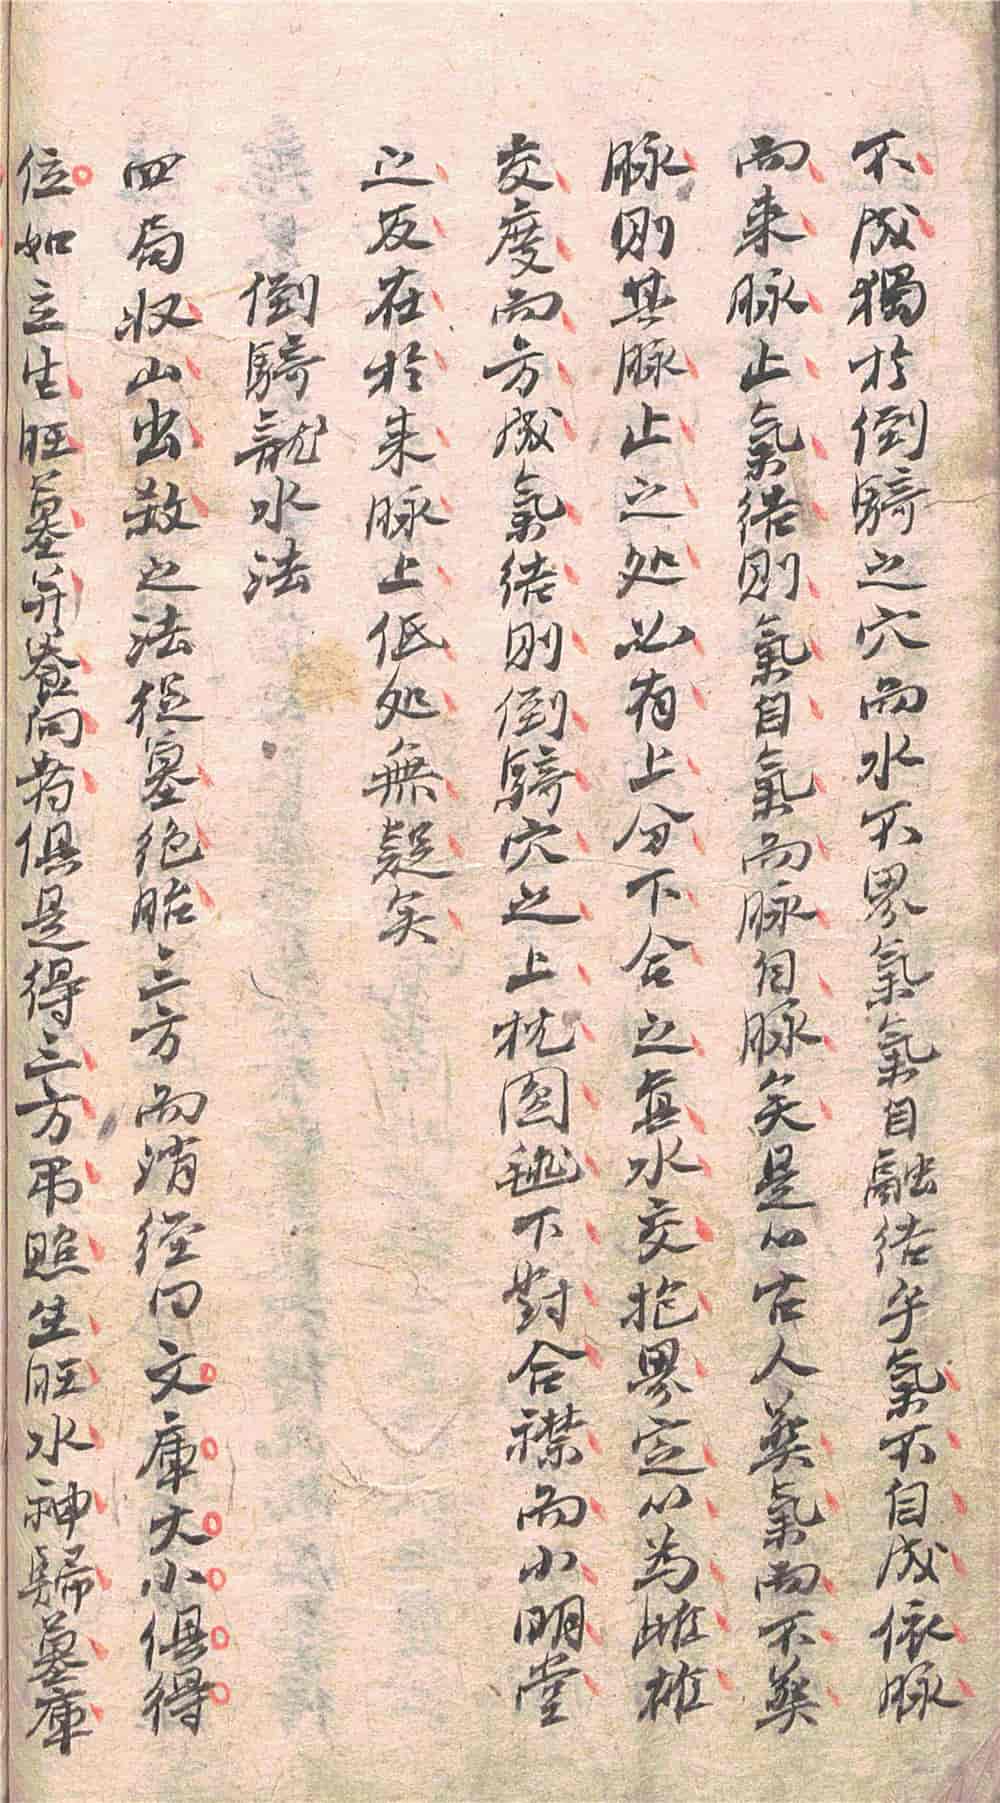 不成獨於倒騎之穴而水不界氣氣自融结乎氣不自成依脉
而来脉止氣结則氣自氣而脉自脉矣是以古人葬氣而不葬
脉則其脉止之处必有上分下合之真水交抱界定以为雌雄
交度而方成氣结則倒騎穴之上枕圆毬下對合襟而小明堂
之反在於来脉上低处無疑矣
倒騎龍水法
四局收山出殺之法從墓绝胎三方而消经曰文庫大小俱得
位如立生旺墓并養向者俱是得三方弔照生旺水神歸墓庫